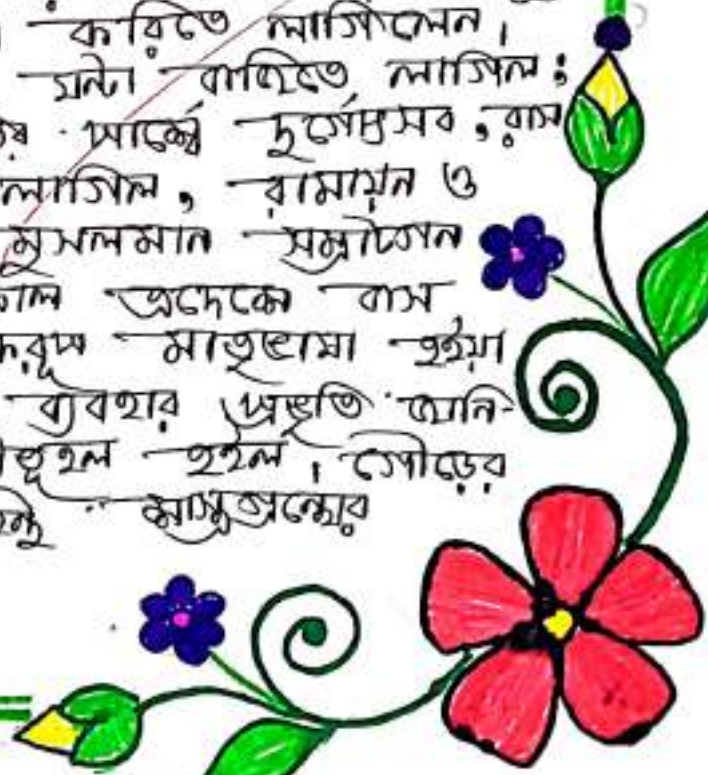 করিতে লাগিলেন।
ঘন্টা বাজিতে লাগিল;
পার্শ্বে দুর্গোৎসব, রাস
লাগিল, রামায়ন ও
মুসলমান সম্রাটগন
এদেশে বাস
মাতৃভাষা হইয়া
ব্যবহার প্রভৃতি জানি-
হইল। গৌড়ের
শাস্ত্রগ্রন্থের